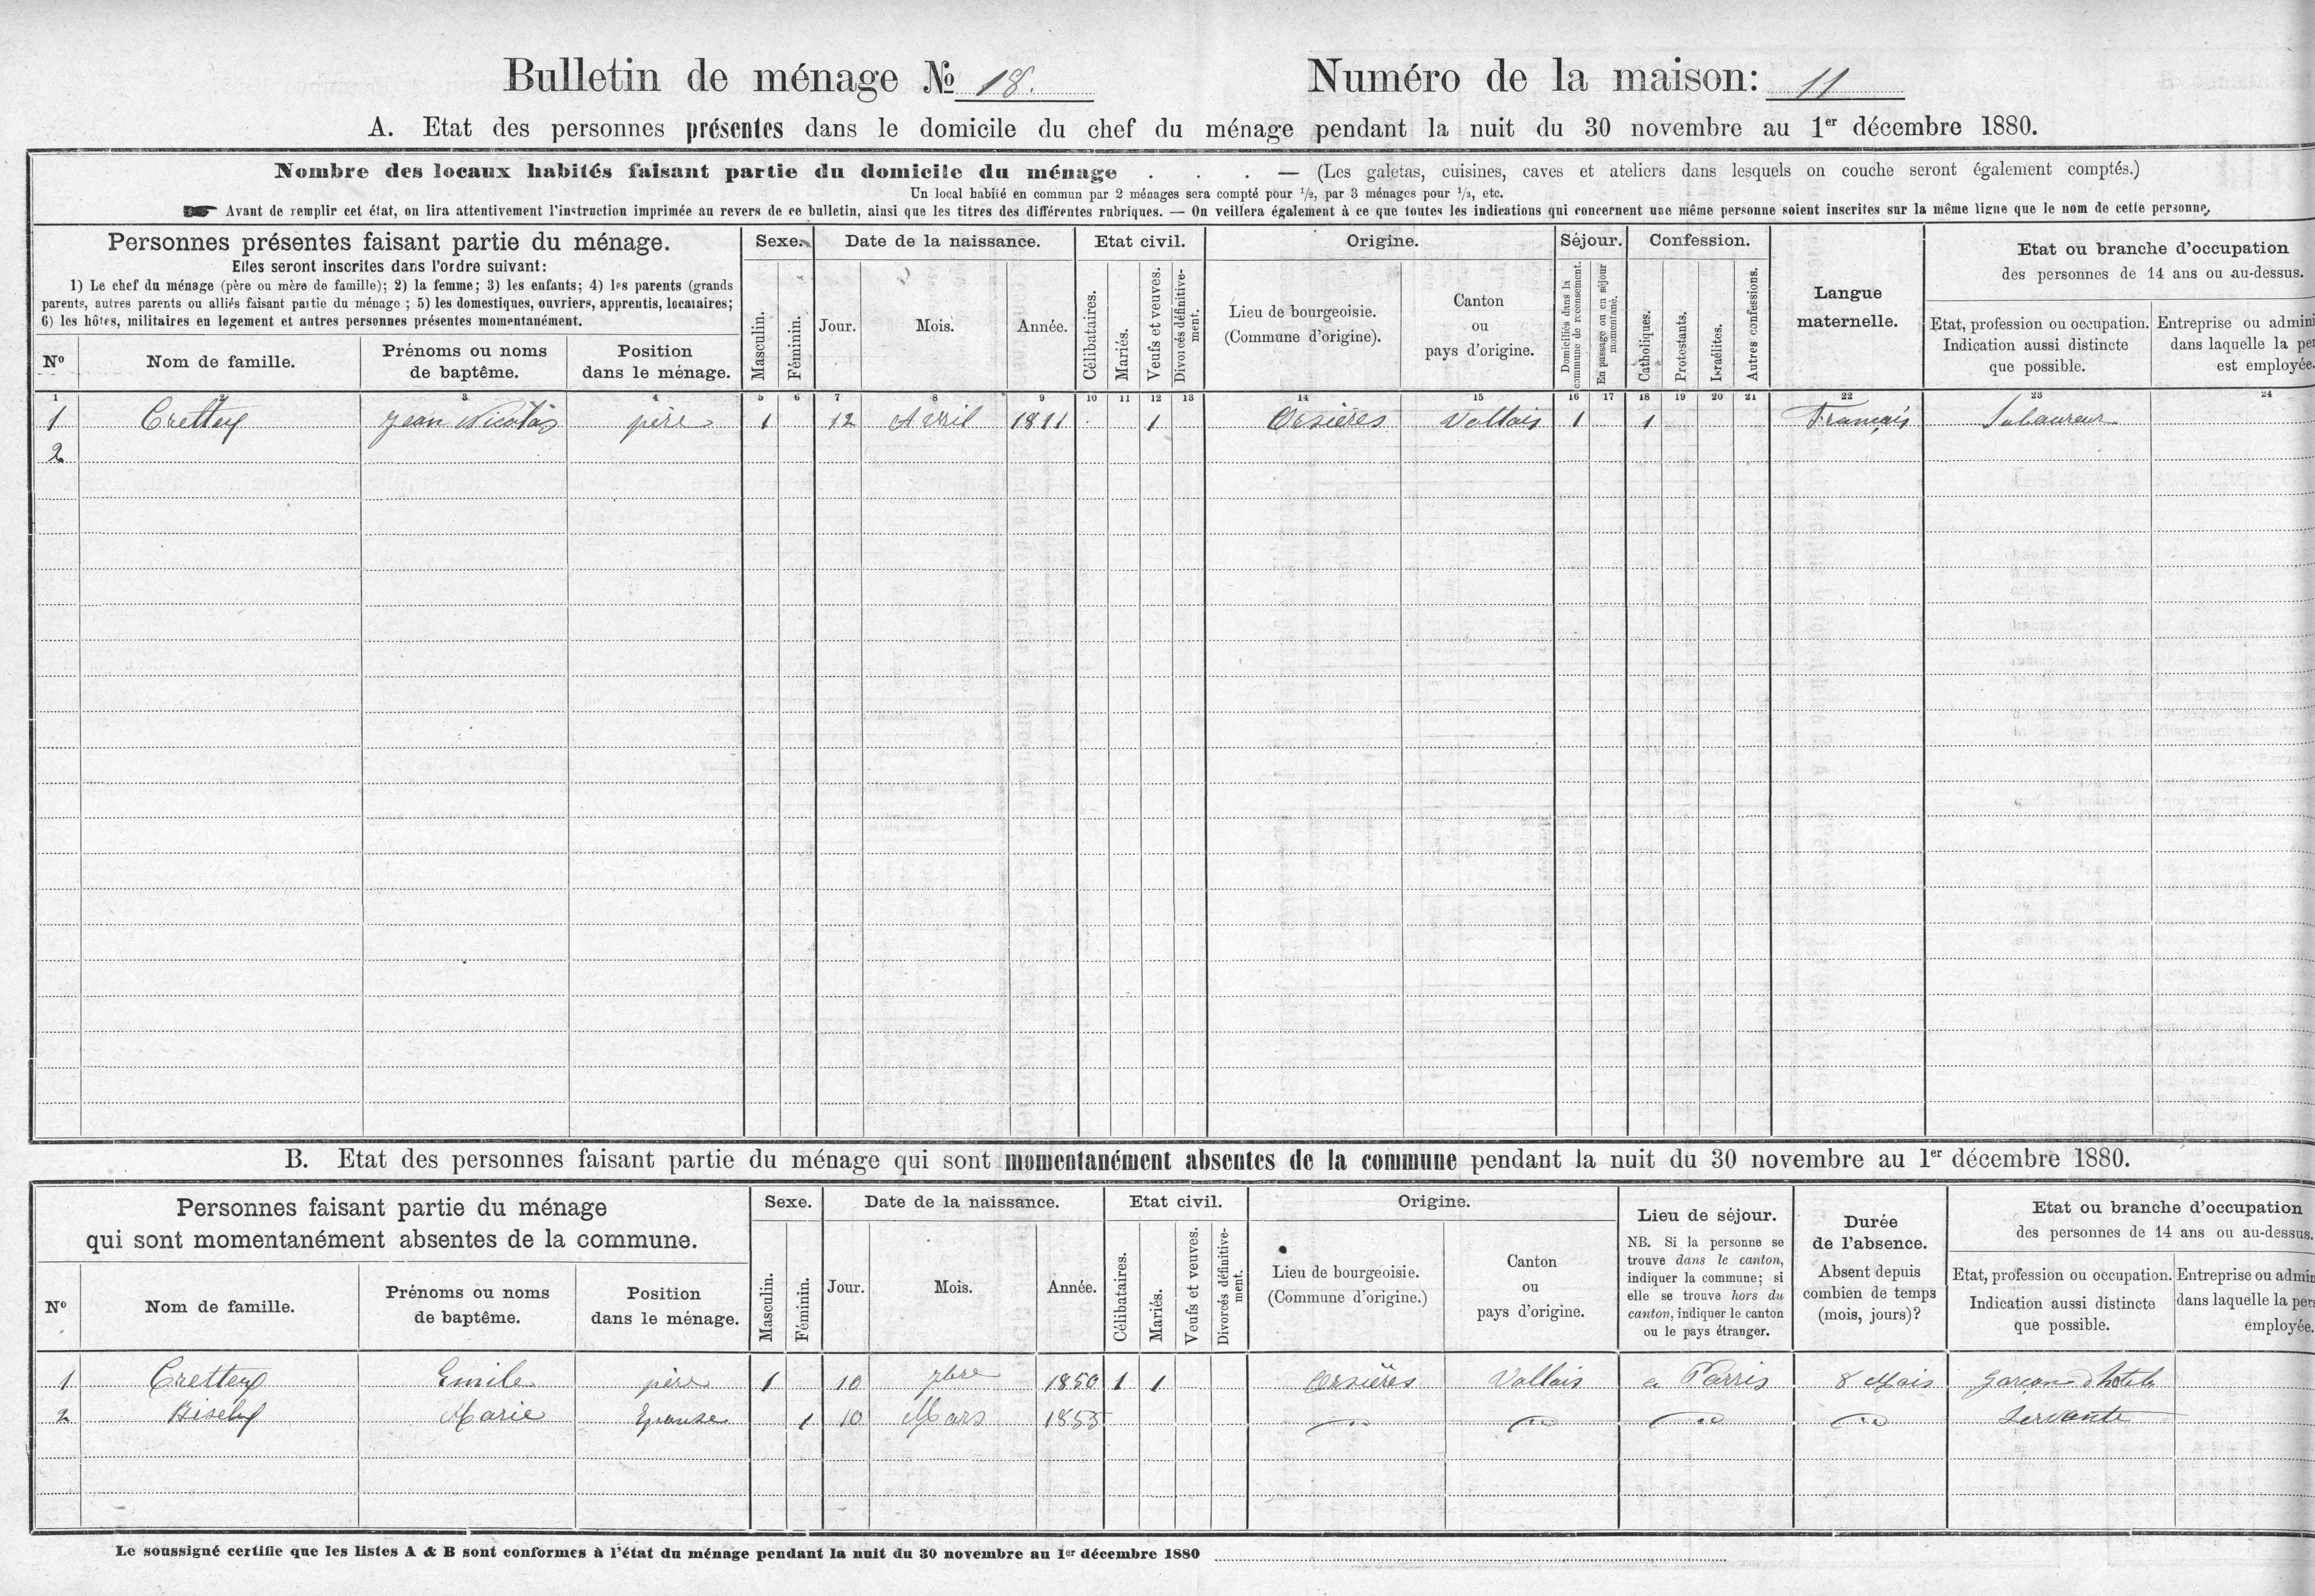 Bulletin de ménage № 18. Numéro de la maison: 11
A. Etat des personnes présentes dans le domicile du chef du ménage pendant la nuit du 30 novembre au 1er décembre 1880.
Nombre des locaux habités faisant partie du domicile du ménage . . . — (Les galetas, cuisines, caves et ateliers dans lesquels on couche seront également comptés.)
Un local habité en commun par 2 ménages sera compté pour 1/2, par 3 ménages pour 1/3, etc.
Avant de remplir cet état, on lira attentivement l'instruction imprimée au revers de ce bulletin, ainsi que les titres des différentes rubriques. — On veillera également à ce que toutes les indications qui concernent une même personne soient inscrites sur la même ligne que le nom de cette personne.
Personnes présentes faisant partie du ménage.
Elles seront inscrites dans l'ordre suivant:
1) Le chef du ménage (père ou mère de famille); 2) la femme; 3) les enfants; 4) les parents (grands
parents, autres parents ou alliés faisant partie du ménage ; 5) les domestiques, ouvriers, apprentis, locataires;
6) les hôtes, militaires en logement et autres personnes présentes momentanément.
No
Nom de famille.
Prénoms ou noms
de baptême.
Position
dans le ménage.
Sexe.
Masculin.
Féminin.
Date de la naissance.
Jour.
Mois.
Année.
Etat civil.
Célibataires.
Mariés.
Veufs et veuves.
Divorcés définitive-
ment.
Origine.
Lieu de bourgeoisie.
(Commune d'origine).
Canton
ou
pays d'origine.
Séjour.
Domiciliés dans la
commune de recensement.
En passage ou en séjour
momentané.
Confession.
Catholiques.
Protestants.
Israélites.
Autres confessions.
Langue
maternelle.
Etat ou branche d'occupation
des personnes de 14 ans ou au-dessus.
Etat, profession ou occupation.
Indication aussi distincte
que possible.
Entreprise ou admini
dans laquelle la per
est employée.
1 2 3 4 5 6 7 8 9 10 11 12 13 14 15 16 17 18 19 20 21 22 23 24
1 Crettex Jean Nicolas père 1 12 Avril 1811 1 Orsières Vallais 1 1 Français Labaureur
2
B. Etat des personnes faisant partie du ménage qui sont momentanément absentes de la commune pendant la nuit du 30 novembre au 1er décembre 1880.
Personnes faisant partie du ménage
qui sont momentanément absentes de la commune.
No
Nom de famille.
Prénoms ou noms
de baptême.
Position
dans le ménage.
Sexe.
Masculin.
Féminin.
Date de la naissance.
Jour.
Mois.
Année.
Etat civil.
Célibataires.
Mariés.
Veufs et veuves.
Divorcés définitive-
ment.
Origine.
Lieu de bourgeoisie.
(Commune d'origine.)
Canton
ou
pays d'origine.
Lieu de séjour.
NB. Si la personne se
trouve dans le canton,
indiquer la commune; si
elle se trouve hors du
canton, indiquer le canton
ou le pays étranger.
Durée
de l'absence.
Absent depuis
combien de temps
(mois, jours)?
Etat ou branche d'occupation
des personnes de 14 ans ou au-dessus.
Etat, profession ou occupation.
Indication aussi distincte
que possible.
Entreprise ou admin
dans laquelle la pers
employée.
1 Crettex Emile père 1 10 7bre 1850 1 1 Orsières Vallais a Parris 8 Mois Garçon d'hotels
2 Biselx Marie Epouse 1 10 Mars 1853 Servante
Le soussigné certifie que les listes A & B sont conformes à l'état du ménage pendant la nuit du 30 novembre au 1er décembre 1880